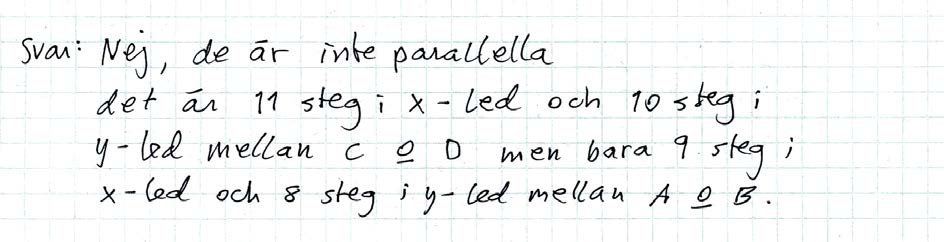 Svar: Nej, de är inte parallella
det är 11 steg i x-led och 10 steg i
y-led mellan C o D men bara 9 steg i
x-led och 8 steg i y-led mellan A o B.